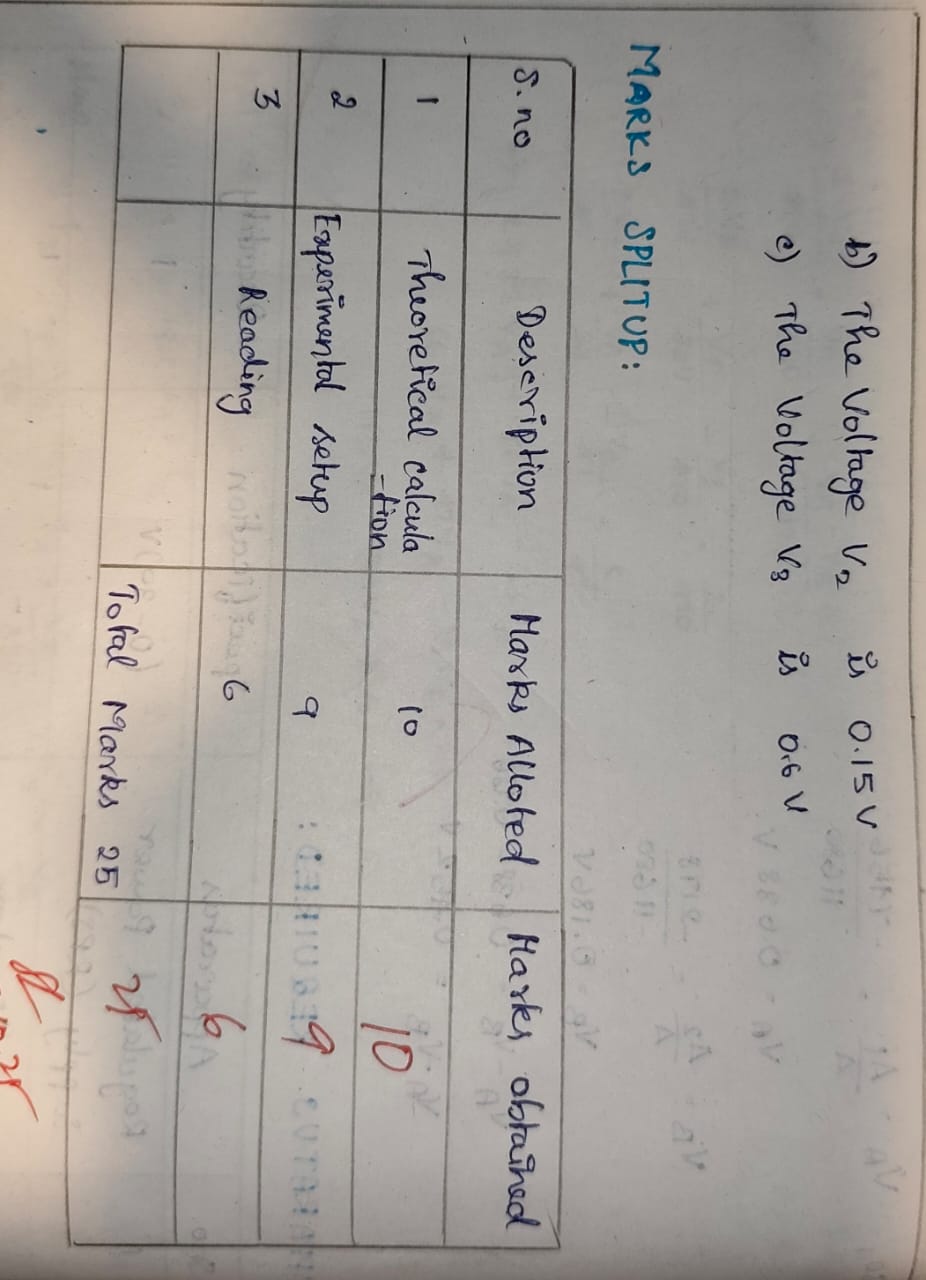 b) The Voltage V2 is 0.15V
c) The Voltage V3 is 0.6 V
MARKS SPLITUP:
S.no Description Marks Alloted Marks obtained
1 Theoretical calcula
-tion 10 10
2 Experimental setup 9 9
3 Reading 6 6
Total Marks 25 25